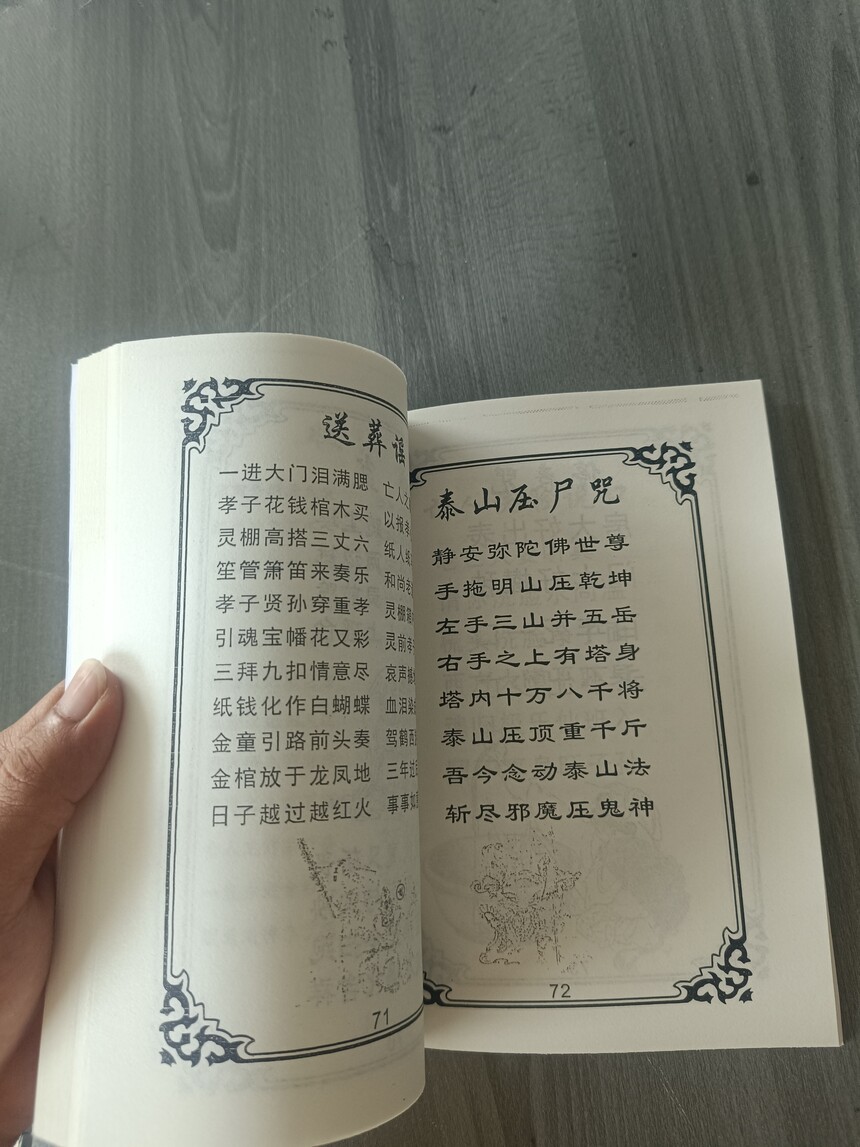 送葬谣
一进大门泪满腮
孝子花钱棺木买
灵棚高搭三丈六
笙管箫笛来奏乐
孝子贤孙穿重孝
引魂宝幡花又彩
三拜九扣情意尽
纸钱化作白蝴蝶
金童引路前头奏
金棺放于龙凤地
日子越过越红火
亡人
以报孝
纸人
和尚
灵棚
灵前孝
哀声
血泪染
驾鹤西
三年
事事如
71
泰山压尸咒
静安弥陀佛世尊
手拖明山压乾坤
左手三山并五岳
右手之上有塔身
塔内十万八千将
泰山压顶重千斤
吾今念动泰山法
斩尽邪魔压鬼神
72